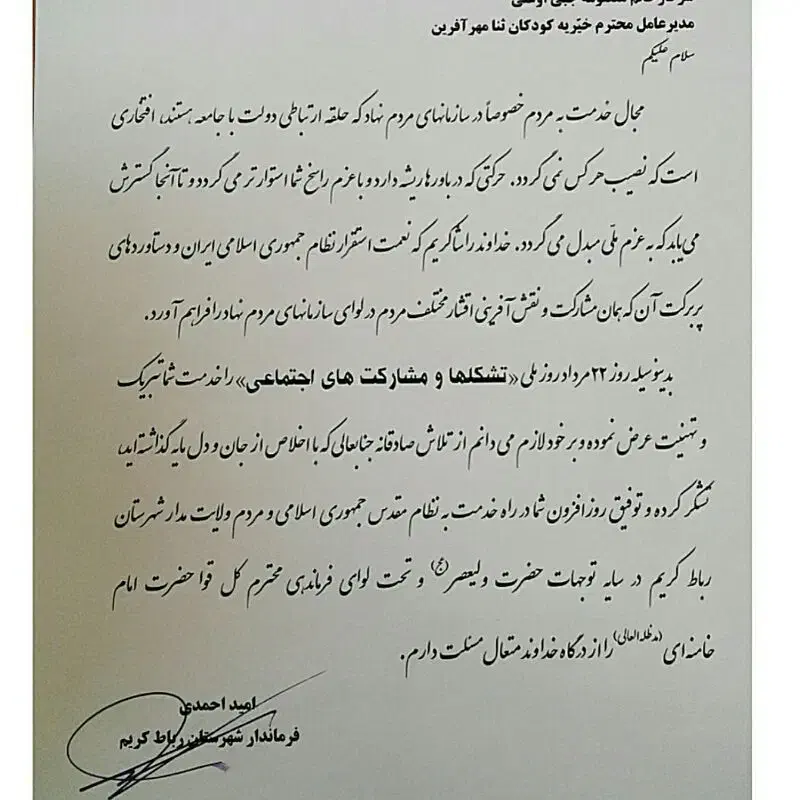 سرکار خانم معصومه جبی اوغلی
مدیرعامل محترم خیّریه کودکان ثنا مهرآفرین
سلام علیکم
مجال خدمت به مردم خصوصاً در سازمانهای مردم نهاد که حلقه ارتباطی دولت با جامعه هستند، افتخاری
است که نصیب هر کس نمی گردد. حرکتی که در باورها ریشه دارد و با عزم راسخ شما استوارتر می گردد و تا آنجا گسترش
می یابد که به عزم ملّی مبدل می گردد. خداوند را شاکریم که نعمت استقرار نظام جمهوری اسلامی ایران و دستاوردهای
پربرکت آن که همان مشارکت و نقش آفرینی اقشار مختلف مردم در لوای سازمانهای مردم نهاد را فراهم آورد.
بدینوسیله روز ۲۲ مرداد روز ملی «تشکلها و مشارکت های اجتماعی» را خدمت شما تبریک
و تهنیت عرض نموده و بر خود لازم می دانم از تلاش صادقانه جنابعالی که با اخلاص از جان و دل مایه گذاشته اید،
تشکر کرده و توفیق روزافزون شما در راه خدمت به نظام مقدس جمهوری اسلامی و مردم ولایت مدار شهرستان
رباط کریم در سایه توجهات حضرت ولیعصر (عج) و تحت لوای فرماندهی محترم کل قوا حضرت امام
خامنه ای (مدظله العالی) را از درگاه خداوند متعال مسئلت دارم.
امید احمدی
فرماندار شهرستان رباط کریم